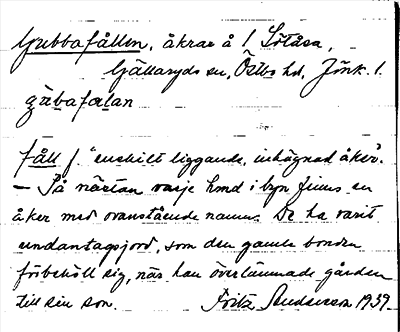 Gubbafållen, åkrar å 1 Sötåsa,
Gällaryds sn, Östbo hd, Jönk. l.
gùbafalan
fåll f. "enskilt liggande, inhägnad åker".
– På nästan varje hmd i byn finns en
åker med ovanstående namn. De ha varit
undantagsjord, som den gamle bonden
förbehöll sig, när han överlämnade gården
till sin son. Fritz Andersson 1939.